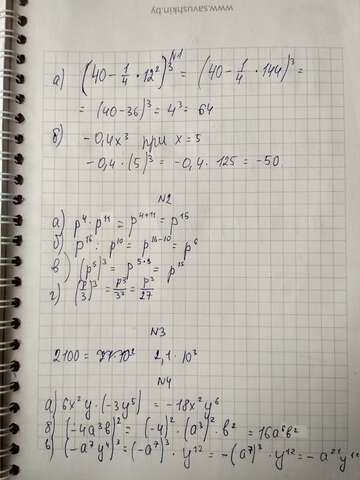 www.savushkin.by
N1
а) (40 - 1/4 · 12²)³ = (40 - 1/4 · 144)³ =
= (40-36)³ = 4³ = 64
б) - 0,4x³ при x = 5
- 0,4 · (5)³ = - 0,4 · 125 = - 50
N2
а) p⁴ · p¹¹ = p⁴⁺¹¹ = p¹⁵
б) p¹⁶ : p¹⁰ = p¹⁶⁻¹⁰ = p⁶
в) (p⁵)³ = p⁵·³ = p¹⁵
г) (p/3)³ = p³/3³ = p³/27
N3
2100 = 2,1 · 10³
N4
а) 6x²y · (-3y⁵) = -18x²y⁶
б) (-4a³b)² = (-4)² · (a³)² · b² = 16a⁶b²
в) (-a⁷y⁴)³ = (-a⁷)³ · y¹² = -(a⁷)³ · y¹² = - a²¹y¹²